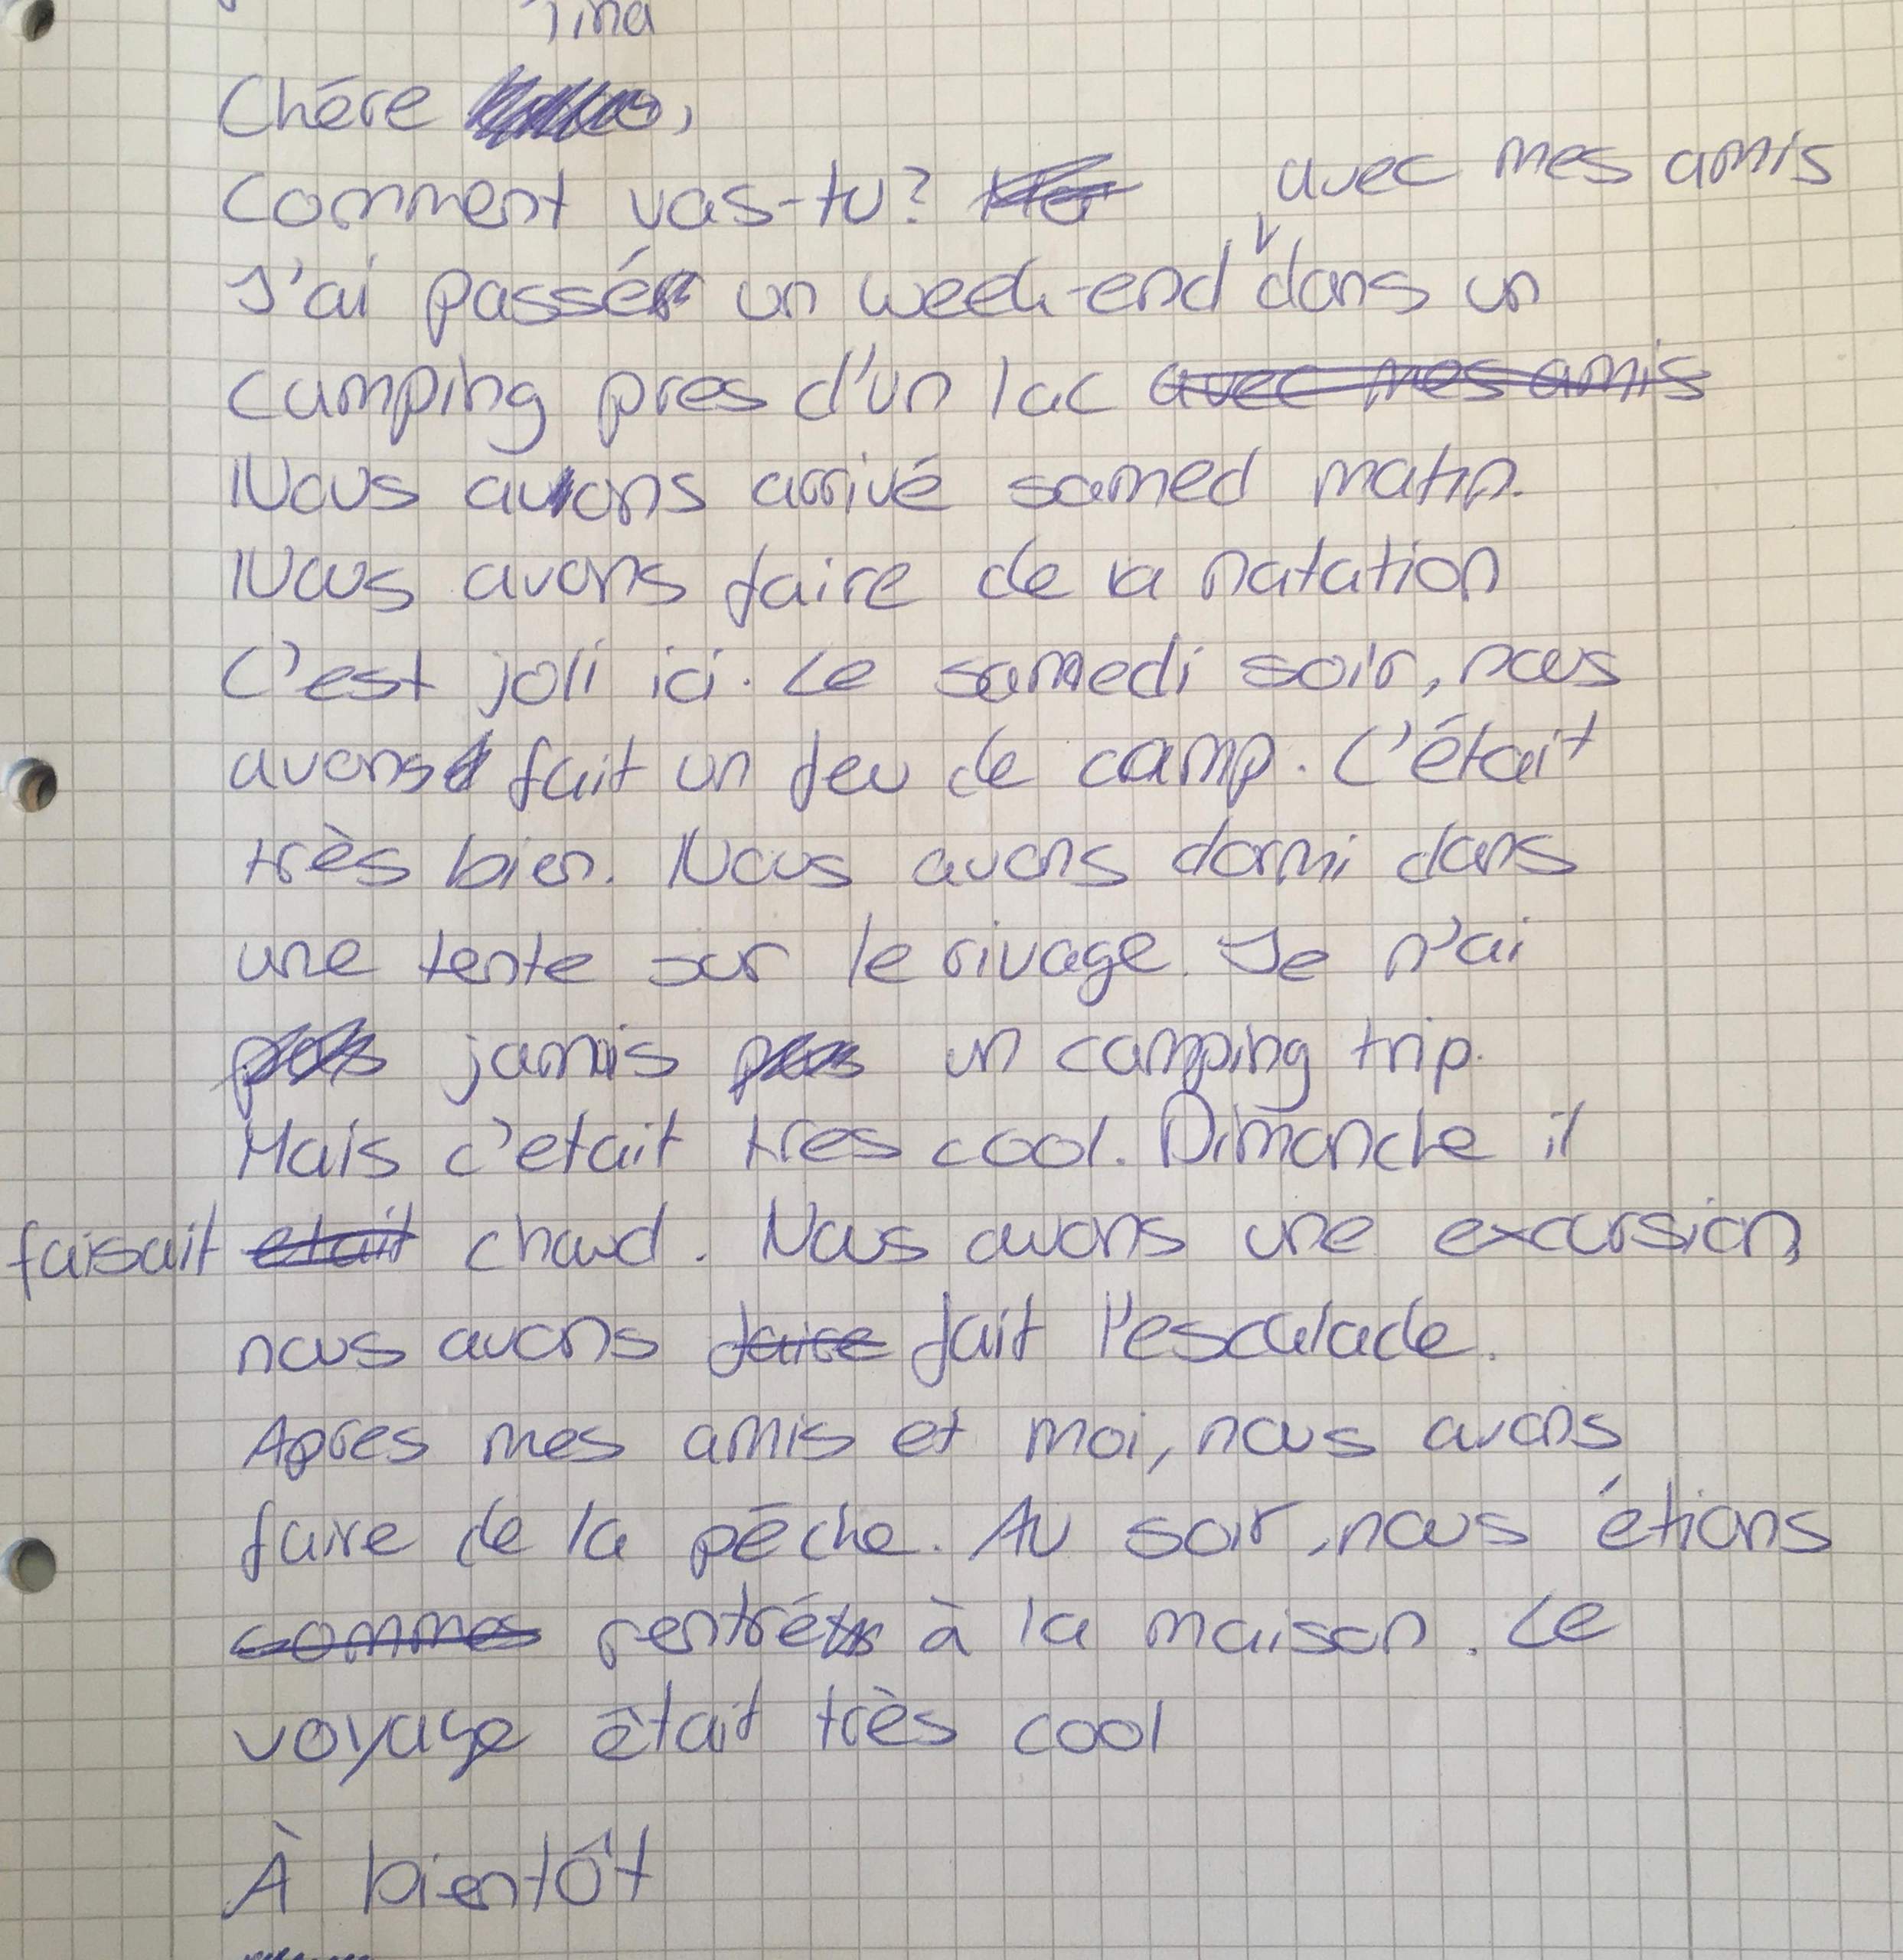 Tina
Chére ,
Comment vas-tu?
avec mes amis
J'ai passé un week-end dans un
camping pres d'un lac avec mes amis
Nous avons arrivé samed matin.
Nous avons faire de la natation
C'est joli ici. Le samedi soir, nous
avons fait un feu de camp. C'était
très bien. Nous avons dormi dans
une tente sur le rivage. Je n'ai
pas jamais pas un camping trip.
Mais c'etait tres cool. Dimanche il
faisait etait chaud. Nous avons une excursion,
nous avons faire fait l'escalade.
Apres mes amis et moi, nous avons
faire de la pêche. Au soir, nous étions
sommes rentré à la maison. Le
voyage était très cool
À bientôt